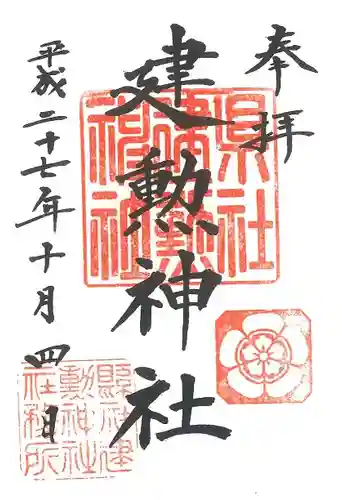 奉拝
建勲神社
平成二十七年十月四日
県社
建勲
神社
縣社建
勲神社
社務所